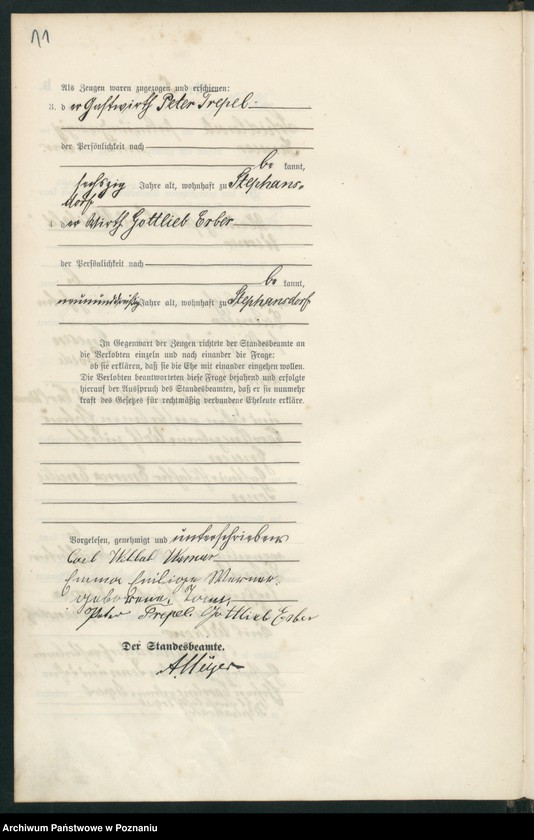 11
Als Zeugen waren zugezogen und erschienen:
3. der Gastwirth Peter Trepel
der Persönlichkeit nach
be kannt,
sechszig Jahre alt, wohnhaft zu Stephans-
dorf
4. der Wirth Gottlieb Erber
der Persönlichkeit nach
be kannt,
neununddreißig Jahre alt, wohnhaft zu Stephansdorf
In Gegenwart der Zeugen richtete der Standesbeamte an
die Verlobten einzeln und nach einander die Frage:
ob sie erklären, daß sie die Ehe mit einander eingehen wollen.
Die Verlobten beantworteten diese Frage bejahend und erfolgte
hierauf der Ausspruch des Standesbeamten, daß er sie nunmehr
kraft des Gesetzes für rechtmäßig verbundene Eheleute erkläre.
Vorgelesen, genehmigt und unterschrieben
Carl Werner
Emma Werner
geborene
Peter Trepel. Gottlieb Erber
Der Standesbeamte.
Archiwum Państwowe w Poznaniu